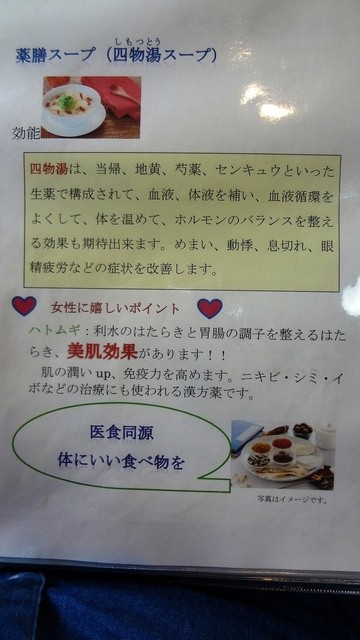 しもつとう
薬膳スープ（四物湯スープ）
効能
四物湯は、当帰、地黄、芍薬、センキュウといった
生薬で構成されて、血液、体液を補い、血液循環を
よくして、体を温めて、ホルモンのバランスを整え
る効果も期待出来ます。めまい、動悸、息切れ、眼
精疲労などの症状を改善します。
女性に嬉しいポイント
ハトムギ：利水のはたらきと胃腸の調子を整えるはた
らき、美肌効果があります！！
肌の潤い up、免疫力を高めます。ニキビ・シミ・イ
ボなどの治療にも使われる漢方薬です。
医食同源
体にいい食べ物を
写真はイメージです。